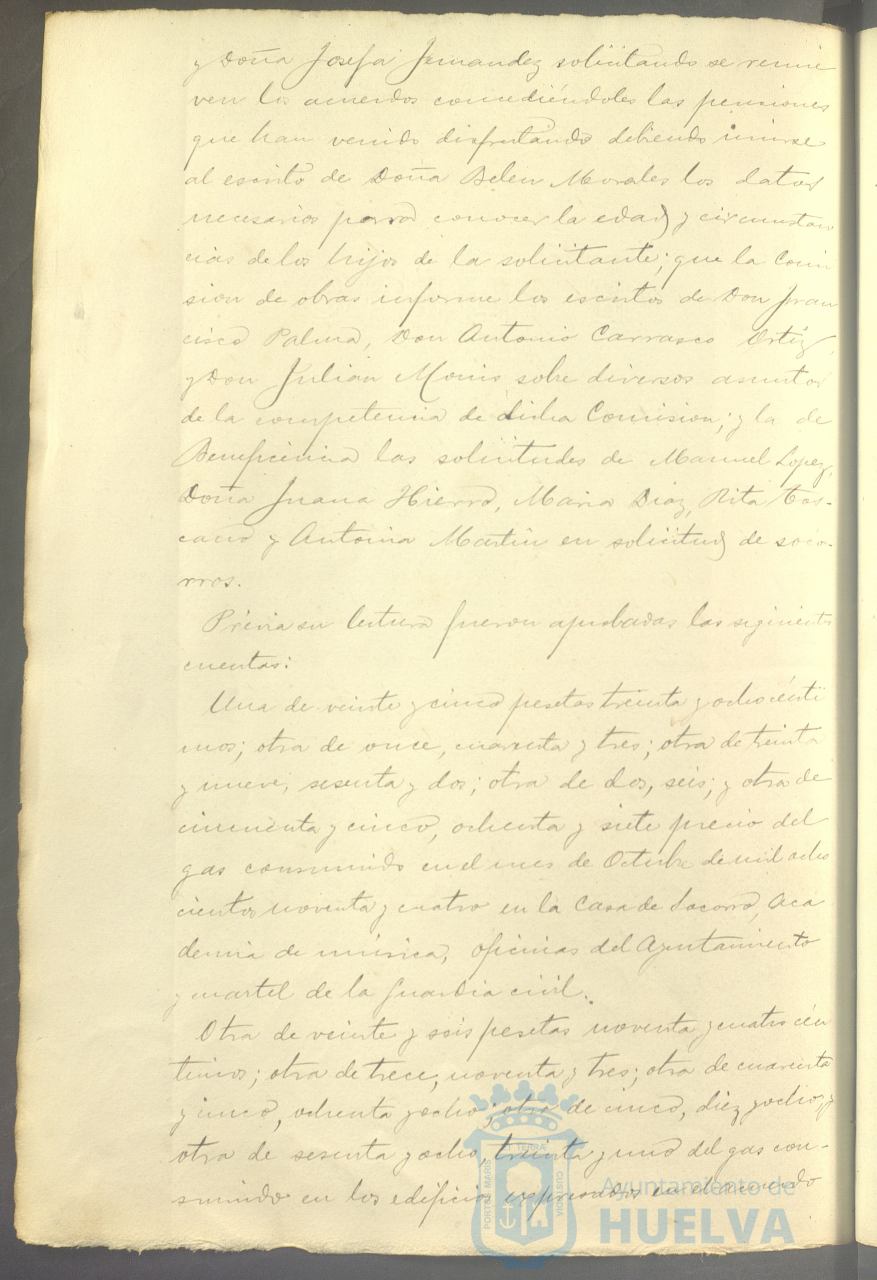 y Doña Josefa Fernandez solicitando se renue
ven los acuerdos concediéndoles las pensiones
que han venido disfrutando debiendo unirse
al escrito de Doña Belen Morales los datos
necesarios para conocer la edad y circunstan
cias de los hijos de la solicitante; que la Comi
sion de obras informe los escritos de Don Fran
cisco Palma, Don Antonio Carrasco Ortiz,
y Don Julian Monis sobre diversos asuntos
de la competencia de dicha Comision; y la de
Beneficencia las solicitudes de Manuel Lopez,
Doña Juana Hierro, Maria Diaz, Rita Tos-
cano y Antonia Martin en solicitud de soco-
rros.
Prévia su lectura fueron aprobadas las siguientes
cuentas:
Una de veinte y cinco pesetas treinta y ocho cénti
mos; otra de once, cuarenta y tres; otra de treinta
y nueve, sesenta y dos; otra de dos, seis; y otra de
cincuenta y cinco, ochenta y siete precio del
gas consumido en el mes de Octubre de mil ocho
cientos noventa y cuatro en la Casa de Socorro, Aca
demia de música, oficinas del Ayuntamiento
y cuartel de la Guardia civil.
Otra de veinte y seis pesetas noventa y cuatro cén
timos; otra de trece, noventa y tres; otra de cuarenta
y cinco, ochenta y ocho; otra de cinco, diez y ocho, y
otra de sesenta y ocho, treinta y uno del gas con-
sumido en los edificios expresados en el
PORTUS MARIS ET TERRÆ CUSTODIA
Ayuntamiento de
HUELVA